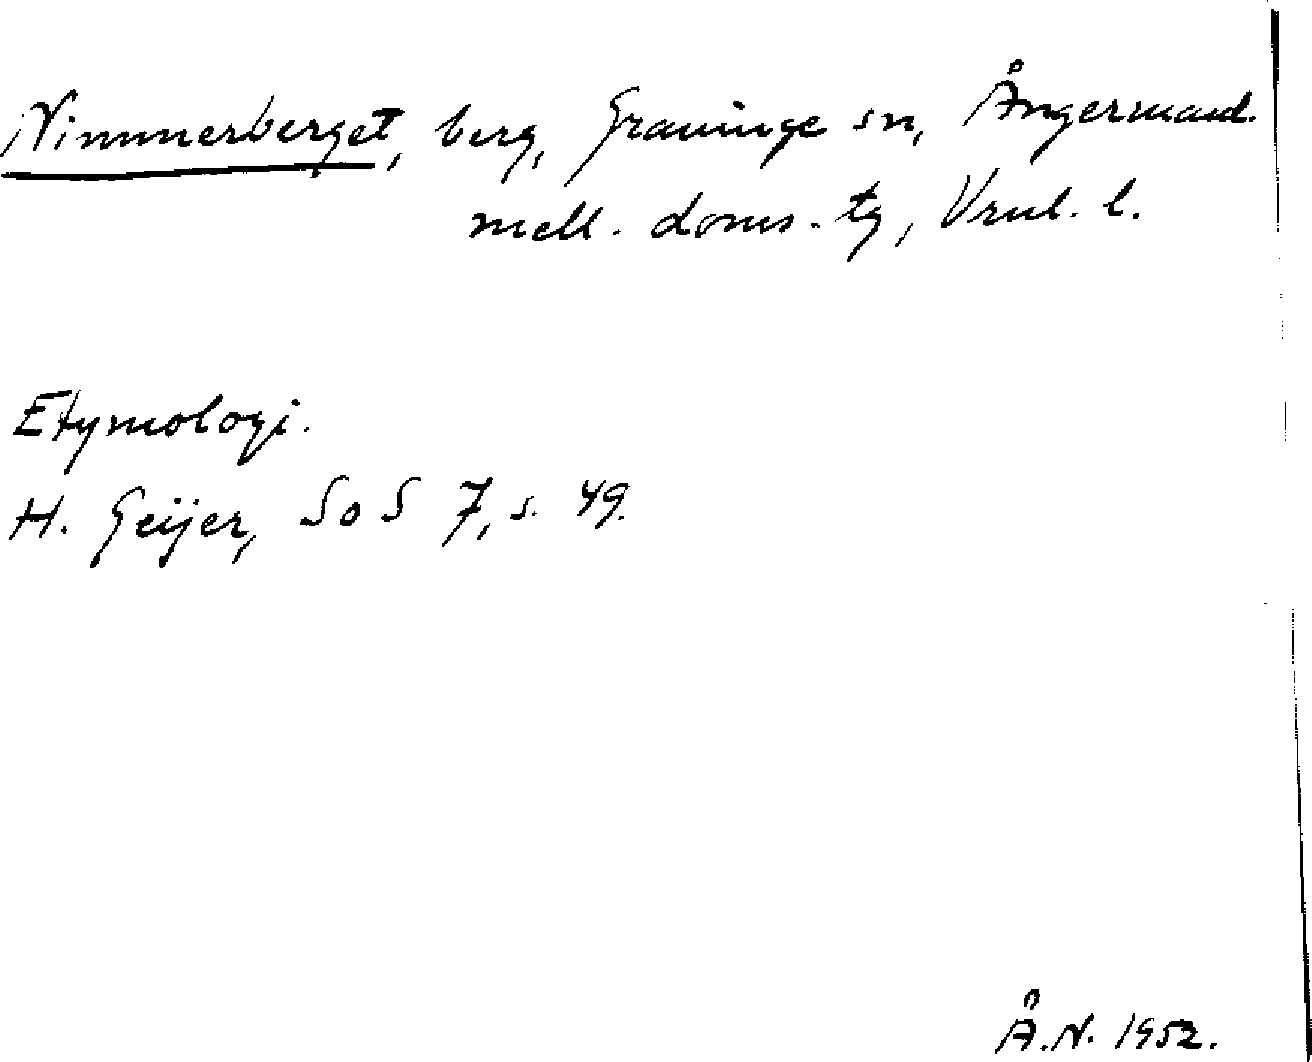 Nimmerberget, berg, Graninge sn, Ångermanl.
mell. doms. tg, Vnl. l.
Etymologi.
H. Geijer, SoS 7, s. 49.
Å.N. 1952.